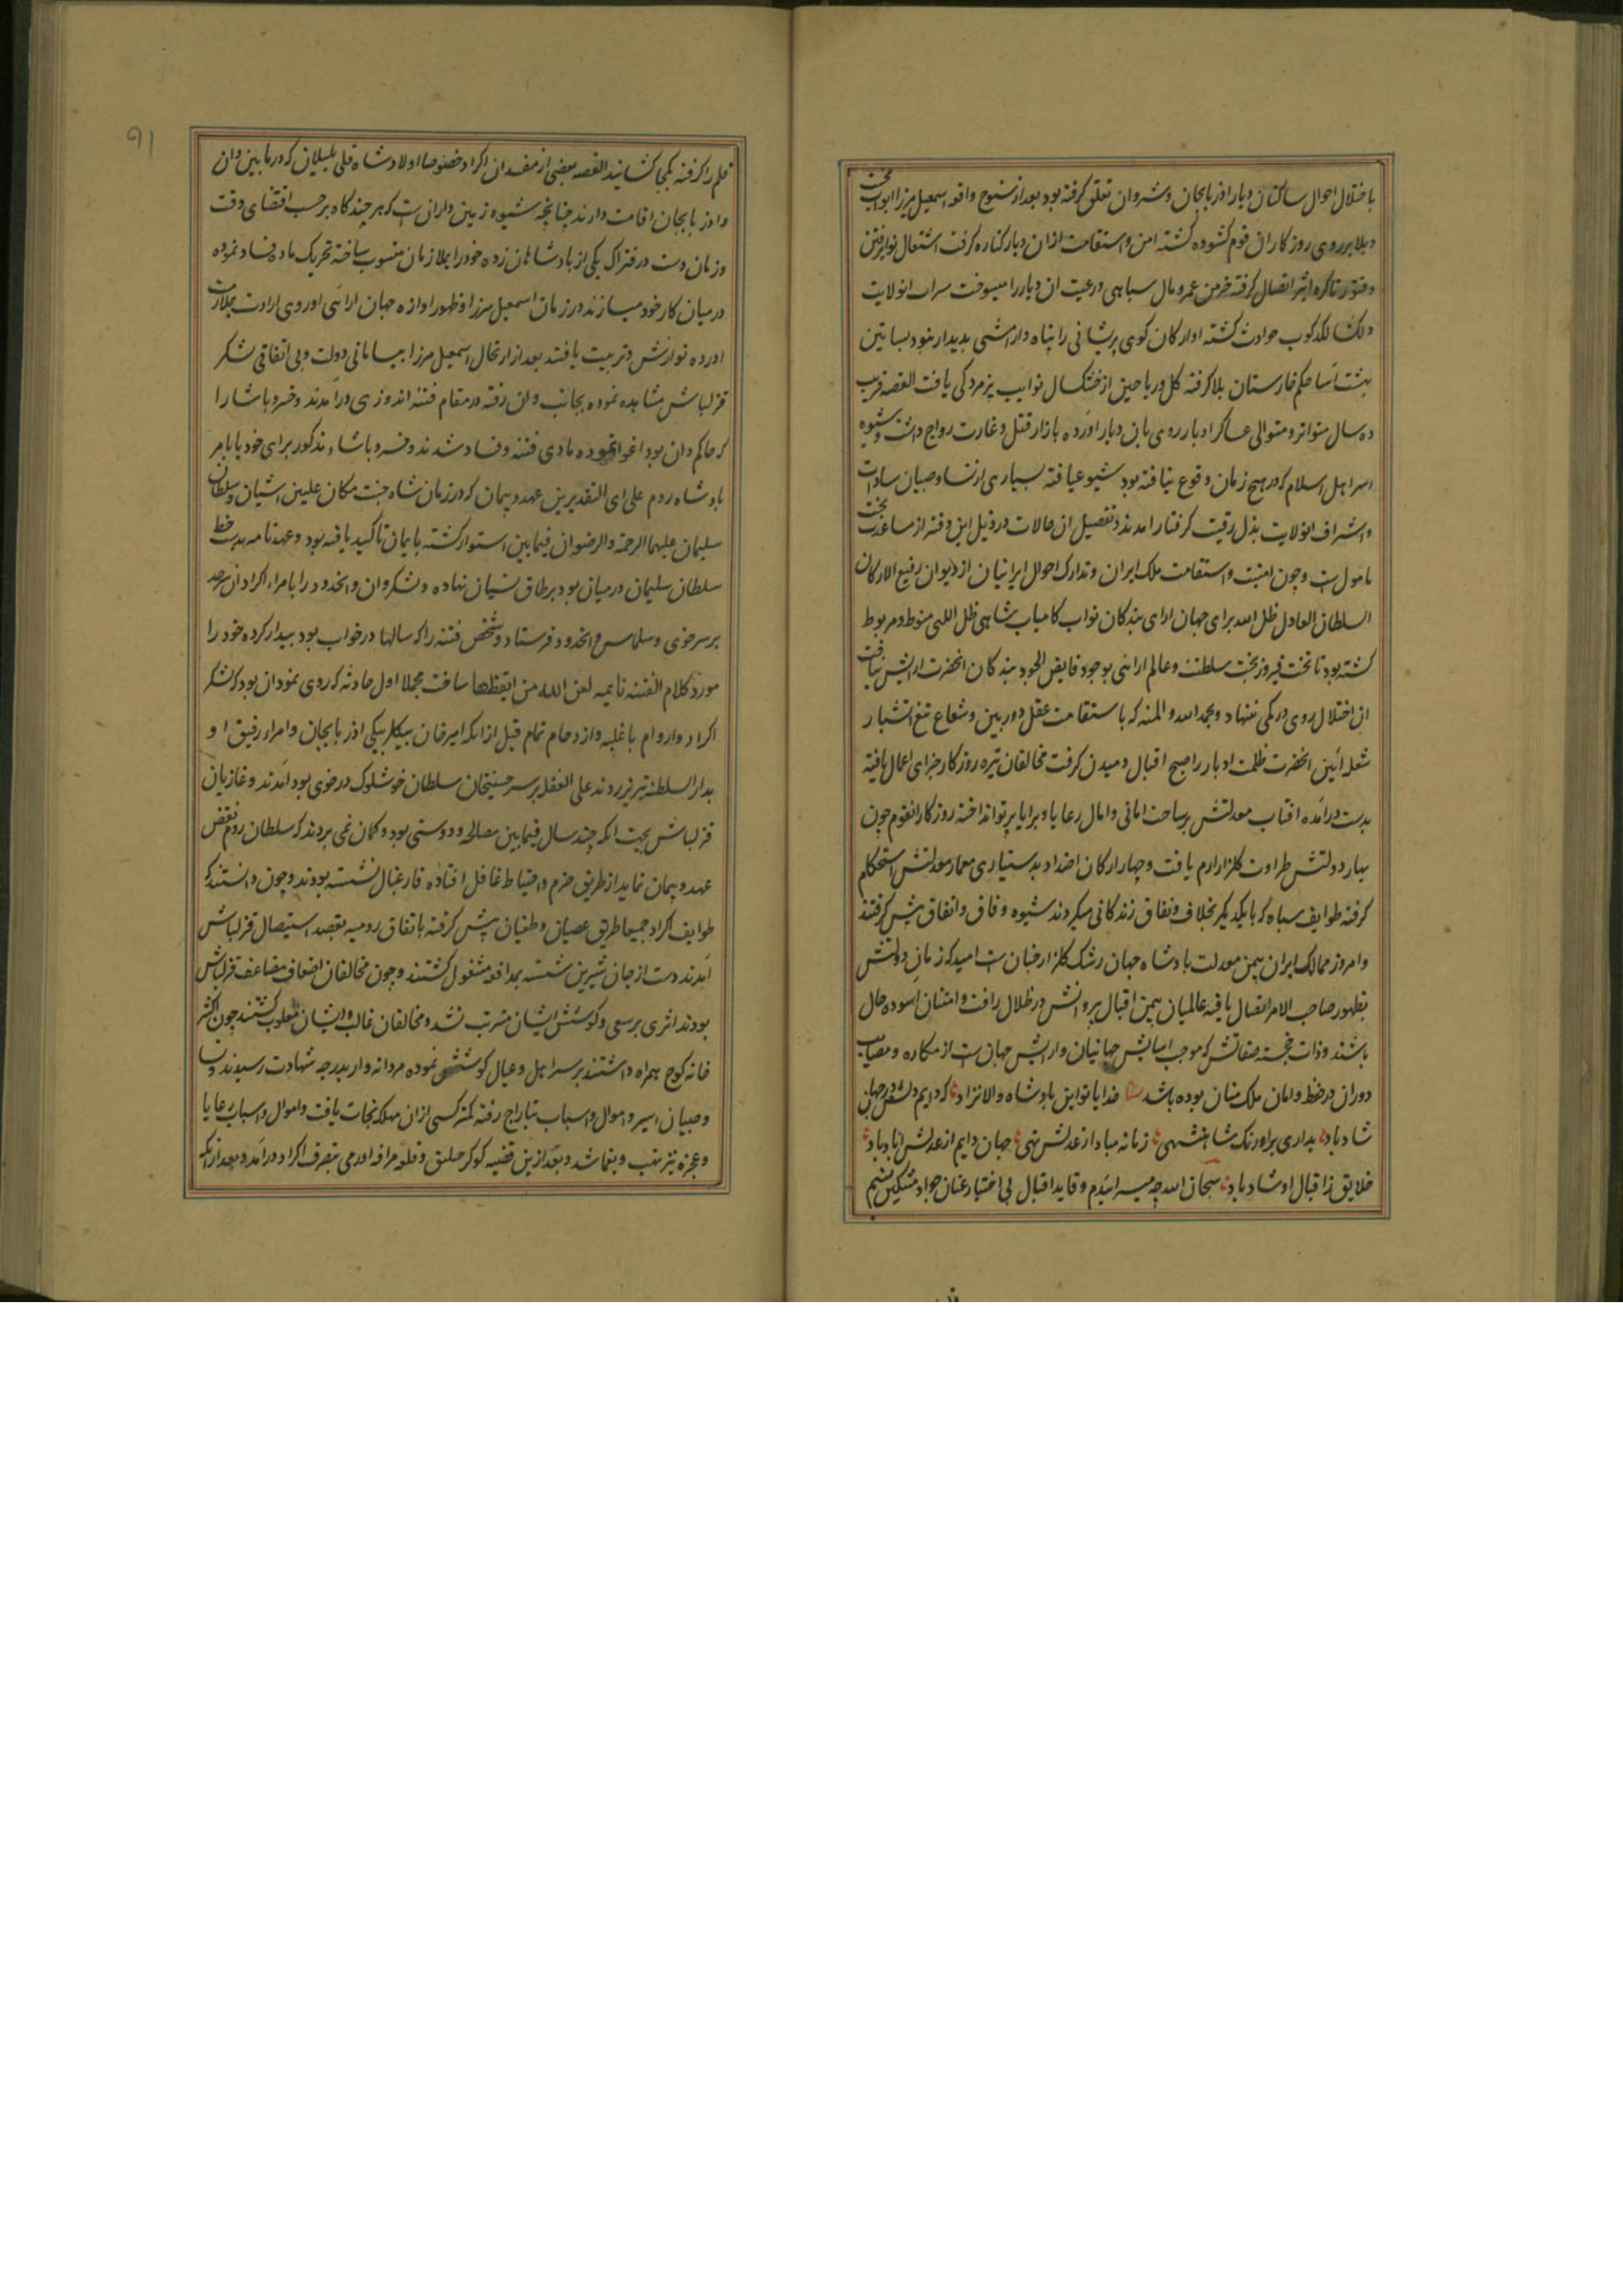 باختلال احوال ساکنان دیار اذربایجان و شروان تعلق گرفته بود بعد از سنوح واقعه اسمعیل میرزا ابواب محنت
و بلا بر روی روزکار ان قوم کشوده کشته امن و استقامت ازان دیار کناره کرفت اشتعال نوایر فتن
و فتور تا کره اثیر اتصال کرفته خرمن عمر و مال سپاهی و رعیت ان دیار را میسوخت سراب انولایت
دلکشا لکدکوب حوادث کشته اوارکان کوی پریشانی را پناه و ارامشی پدیدار نبود بساتین
بهشت اسا حکم خارستان بلا کرفته کل و ریاحین از خشکسال نوایب پژمردکی یافت القصه قریب
ده سال متواتر و متوالی عساکر ادبار روی بان دیار اورده بازار قتل و غارت رواج داشت و شیوه
اسر اهل اسلام که در هیچ زمان وقوع نیافته بود شیوع یافته بسیاری از نسا و صبیان سادات
و اشراف انولایت بذل رقیت کرفتار امدند و تفصیل ان حالات در ذیل این دفتر از مساعدت بخت
مامول است و چون امنیت و استقامت ملک ایران و تدارک احوال ایرانیان از دیوان رفیع الارکان
السلطان العادل ظل الله برای جهان ارای بندکان نواب کامیاب شاهی ظل اللهی منوط و مربوط
کشته بود تا تخت فیروز بخت سلطنت و عالم ارائی بوجود فایض الجود بندکان انحضرت ارایش نیافت
ان اختلال روی در کمی ننهاد و بحمد الله و المنه که باستقامت عقل دوربین و شعاع تیغ اتشبار
شعله ائین انحضرت ظلمت ادبار را صبح اقبال دمیدن کرفت مخالفان تیره روزکار جزای اعمال یافته
بدست درامده افتاب معدلتش بر ساحت امانی و امال رعایا و برایا پرتو انداخته روزکار انقوم چون
بهار دولتش طراوت کلزار ارم یافت و چهار ارکان اضداد بدستیاری معمار معدلتش استحکام
کرفته طوایف سپاه که با یکدیکر بخلاف و نفاق زندکانی میکردند شیوه وفاق و اتفاق پیش کرفتند
و امروز ممالک ایران بیمن معدلت پادشاه جهان رشک کلزار جنان است امید که زمان دولتش
بظهور صاحب الامر اتصال یافته عالمیان بیمن اقبال بیزوالش در ظلال رافت و امتنان اسوده حال
باشند و ذات خجسته صفاتش که موجب اسایش جهانیان و ارایش جهان است از مکاره و مصایب
دوران در حفظ و امان ملک منان بوده باشد خدایا تو این پادشاه والانژاد که دایم دلش در جهان
شاد باد بداری بر اورنک شاهنشهی زمانه مبادا ز عدلش تهی جهان دایم از عدلش اباد باد
خلایق ز اقبال او شاد باد سبحان الله چه میسرایدم و قاید اقبال بی اختیار عنان جواد مشکین نسیم
۹۱
قلم را کرفته بکجا کشانید القصه بعضی از مفسدان اکراد خصوصا اولاد شاه قلی بلیلان که در ما بین وان
و اذربایجان اقامت دارند چنانچه شیوه زمین داران است که هر چند کاه بر حسب اقتضای وقت
و زمان دست در فتراک یکی از پادشاهان زده خود را بملازمان منسوب ساخته تحریک ماده فساد نموده
در میان کار خود میسازند در زمان اسمعیل میرزا و ظهور اوازه جهان ارائی او روی ارادت بملازمت
اورده نوازش و تربیت یافتند بعد از ارتحال اسمعیل میرزا بیسامانی دولت و بی اتفاقی لشکر
قزلباش مشاهده نموده بجانب وان رفته در مقام فتنه اندوزی درامدند و خسرو پاشا را
که حاکم وان بود اغوا نموده مادی فتنه و فساد شدند و خسرو پاشاء مذکور برای خود یا بامر
پادشاه روم علی ای التقدیرین عهد و پیمان که در زمان شاه جنت مکان علیین اشیان و سلطان
سلیمان علیهما الرحمة و الرضوان فیما بین استوار کشته بایمان تاکید یافته بود و عهدنامه بدستخط
سلطان سلیمان در میان بود بر طاق نسیان نهاده و لشکر وان و انحدود را با امراء اکراد ان سرحد
بر سر خوی و سلماس و انحدود فرستاد و شخص فتنه را که سالها در خواب بود بیدار کرده خود را
مورد کلام الفتنه نایمه لعن الله من ایقظها ساخت مجملا اول حادثه که روی نمود ان بود که لشکر
اکراد و اروام با غلبه و ازدحام تمام قبل از انکه امیرخان بیکلربیکی اذربایجان و امراء رفیق او
بدار السلطنه تبریز روند علی الغفله بر سر حسینخان سلطان خوشلوک در خوی بود امدند و غازیان
قزلباش بجهت انکه چند سال فیما بین مصالحه و دوستی بود و کمان نمی بردند که سلطان روم نقض
عهد و پیمان نماید از طریق حزم و احتیاط غافل افتاده فارغبال نشسته بودند و چون دانستند که
طوایف اکراد جمیعا طریق عصیان و طغیان پیش کرفته باتفاق رومیه بقصد استیصال قزلباش
امدند دست از جان شیرین شسته بمدافعه مشغول کشتند و چون مخالفان اضعاف مضاعف قزلباش
بودند اثری بر سعی و کوشش ایشان مترتب نشد و مخالفان غالب و ایشان مغلوب کشتند چون اکثر
خانه کوچ همراه داشتند بر سر اهل و عیال کوشش نموده مردانه وار بدرجه شهادت رسیدند و نسا
و صبیان اسیر و اموال و اسباب بتاراج رفته کمتر کسی ازان مهلکه نجات یافت و اموال و اسباب رعایا
و عجزه نیز نهب و یغما شد و بعد ازین قضیه کوکرجنلیق و قلعه مراغه اورمی بتصرف اکراد درامد و بعد از انکه